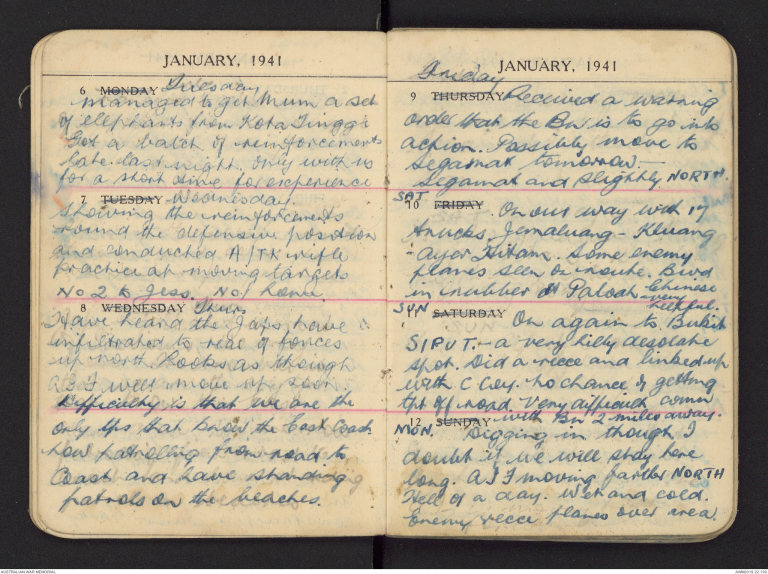 JANUARY, 1941
6 MONDAY Tuesday
Managed to get Mum a set
of elephants from Kota Tinggi
Got a batch of reinforcements
late last night. Only with us
for a short time for experience
7 TUESDAY Wednesday.
Showing the reinforcements
round the defensive position
and conducted A/TK rifle
practice at moving targets
No 2 to Jess. No1 home.
8 WEDNESDAY Thurs
Have heard the Japs have
infiltrated to rear of forces
up north. Looks as though
A.I.F will move up soon.
Difficulty is that we are the
only tps that know the East Coast
now patrolling from road to
Coast and have standing
patrols on the beaches.
JANUARY, 1941
Friday
9 THURSDAY Received a warning
order that the Bn is to go into
action. Possibly move to
Segamat tomorrow.-
Segamat and slightly NORTH.
SAT
10 FRIDAY. On our way with 17
trucks Jemaluang - Kluang
- Ayer Hitam. Some enemy
planes seen en route. Bivd
in rubber at Paloh Chinese
very helpful.
SUN
SATURDAY On again to Bukit
SIPUT. - a very hilly desolate
spot. Did a recce and linked up
with C Coy. No chance of getting
tpt off road. Very difficult comn
with Bn 2 miles away.
12 SUNDAY
MON. Digging in though I
doubt if we will stay here
long. A.I.F moving farther NORTH
Hell of a day. Wet and cold.
Enemy recce planes over area.
AUSTRALIAN WAR MEMORIAL